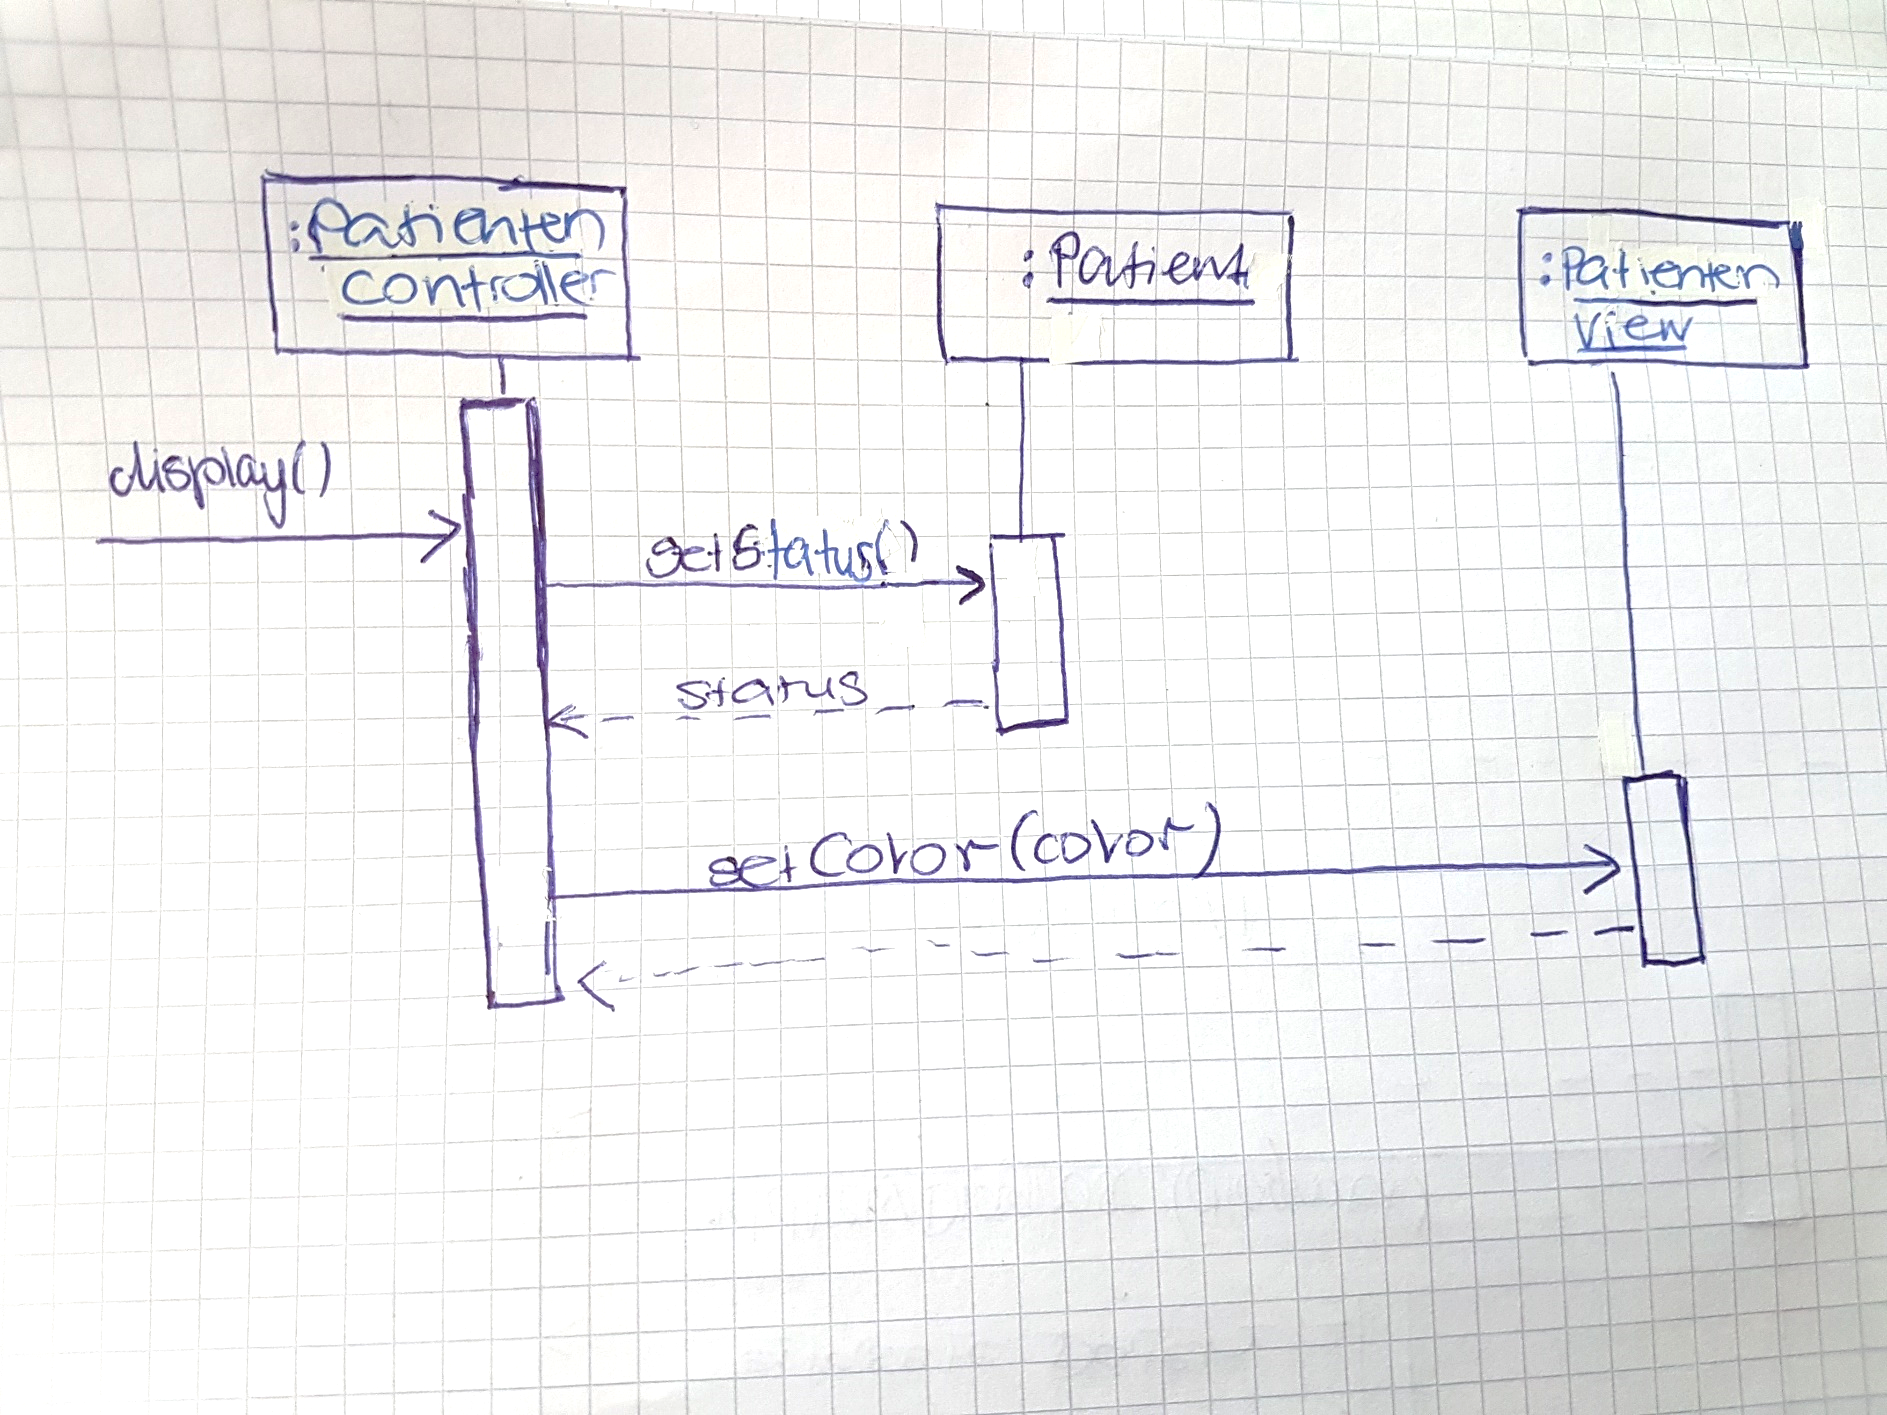 :Patienten
controller
:Patient
:Patienten
View
display()
getStatus()
status
setColor(color)